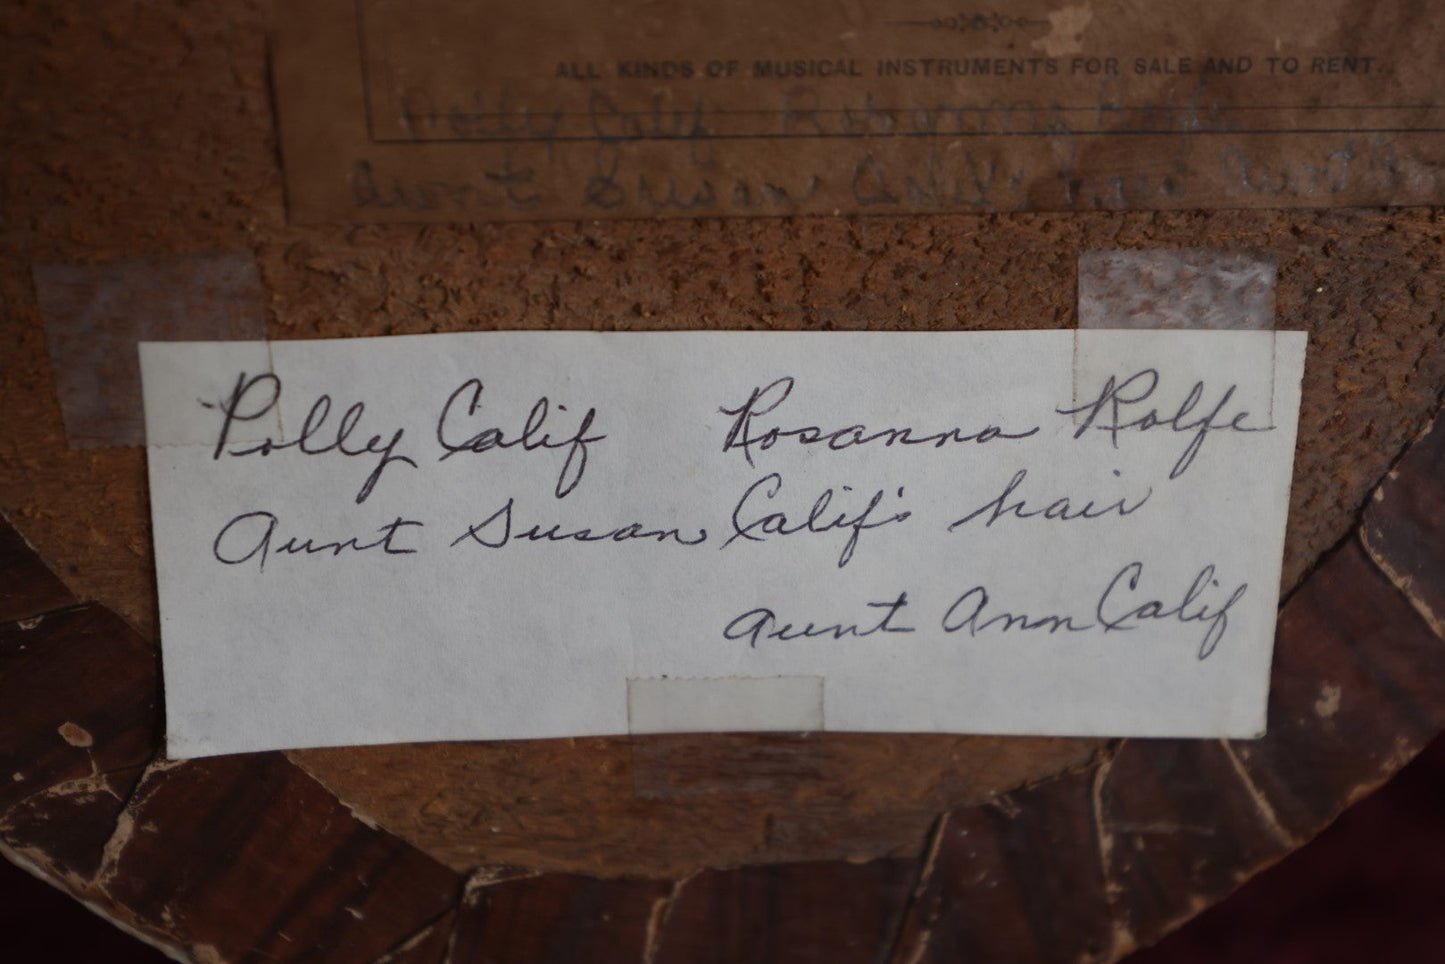 ALL KINDS OF MUSICAL INSTRUMENTS FOR SALE AND TO RENT.
Polly Calif Rolfe
Aunt Susan Calif's hair Aunt
Polly Calif Rosanna Rolfe
Aunt Susan Calif's hair
Aunt Ann Calif